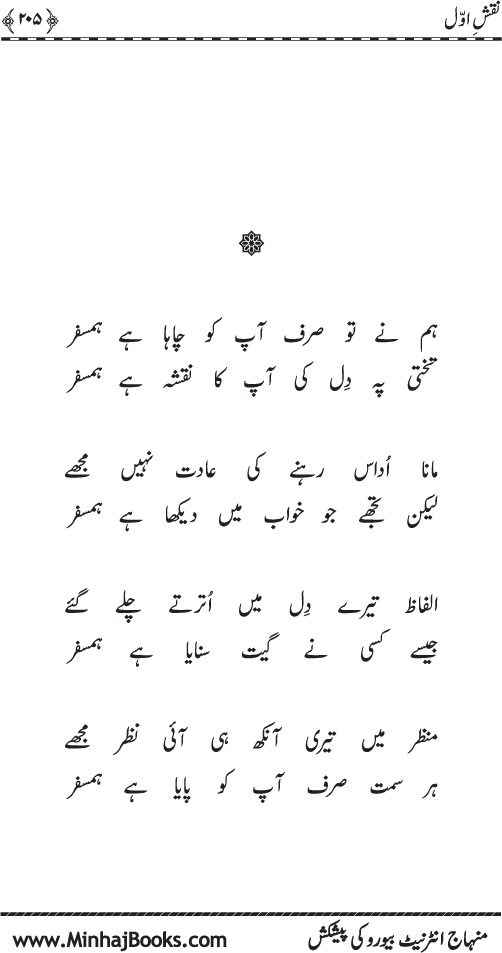 نقشِ اوّل
﴿۲۰۵﴾
ہم نے تو صرف آپ کو چاہا ہے ہمسفر
تختی پہ دِل کی آپ کا نقشہ ہے ہمسفر
مانا اُداس رہنے کی عادت نہیں مجھے
لیکن تجھے جو خواب میں دیکھا ہے ہمسفر
الفاظ تیرے دِل میں اُترتے چلے گئے
جیسے کسی نے گیت سنایا ہے ہمسفر
منظر میں تیری آنکھ ہی آئی نظر مجھے
ہر سمت صرف آپ کو پایا ہے ہمسفر
منہاج انٹرنیٹ بیورو کی پیشکش
www.MinhajBooks.com